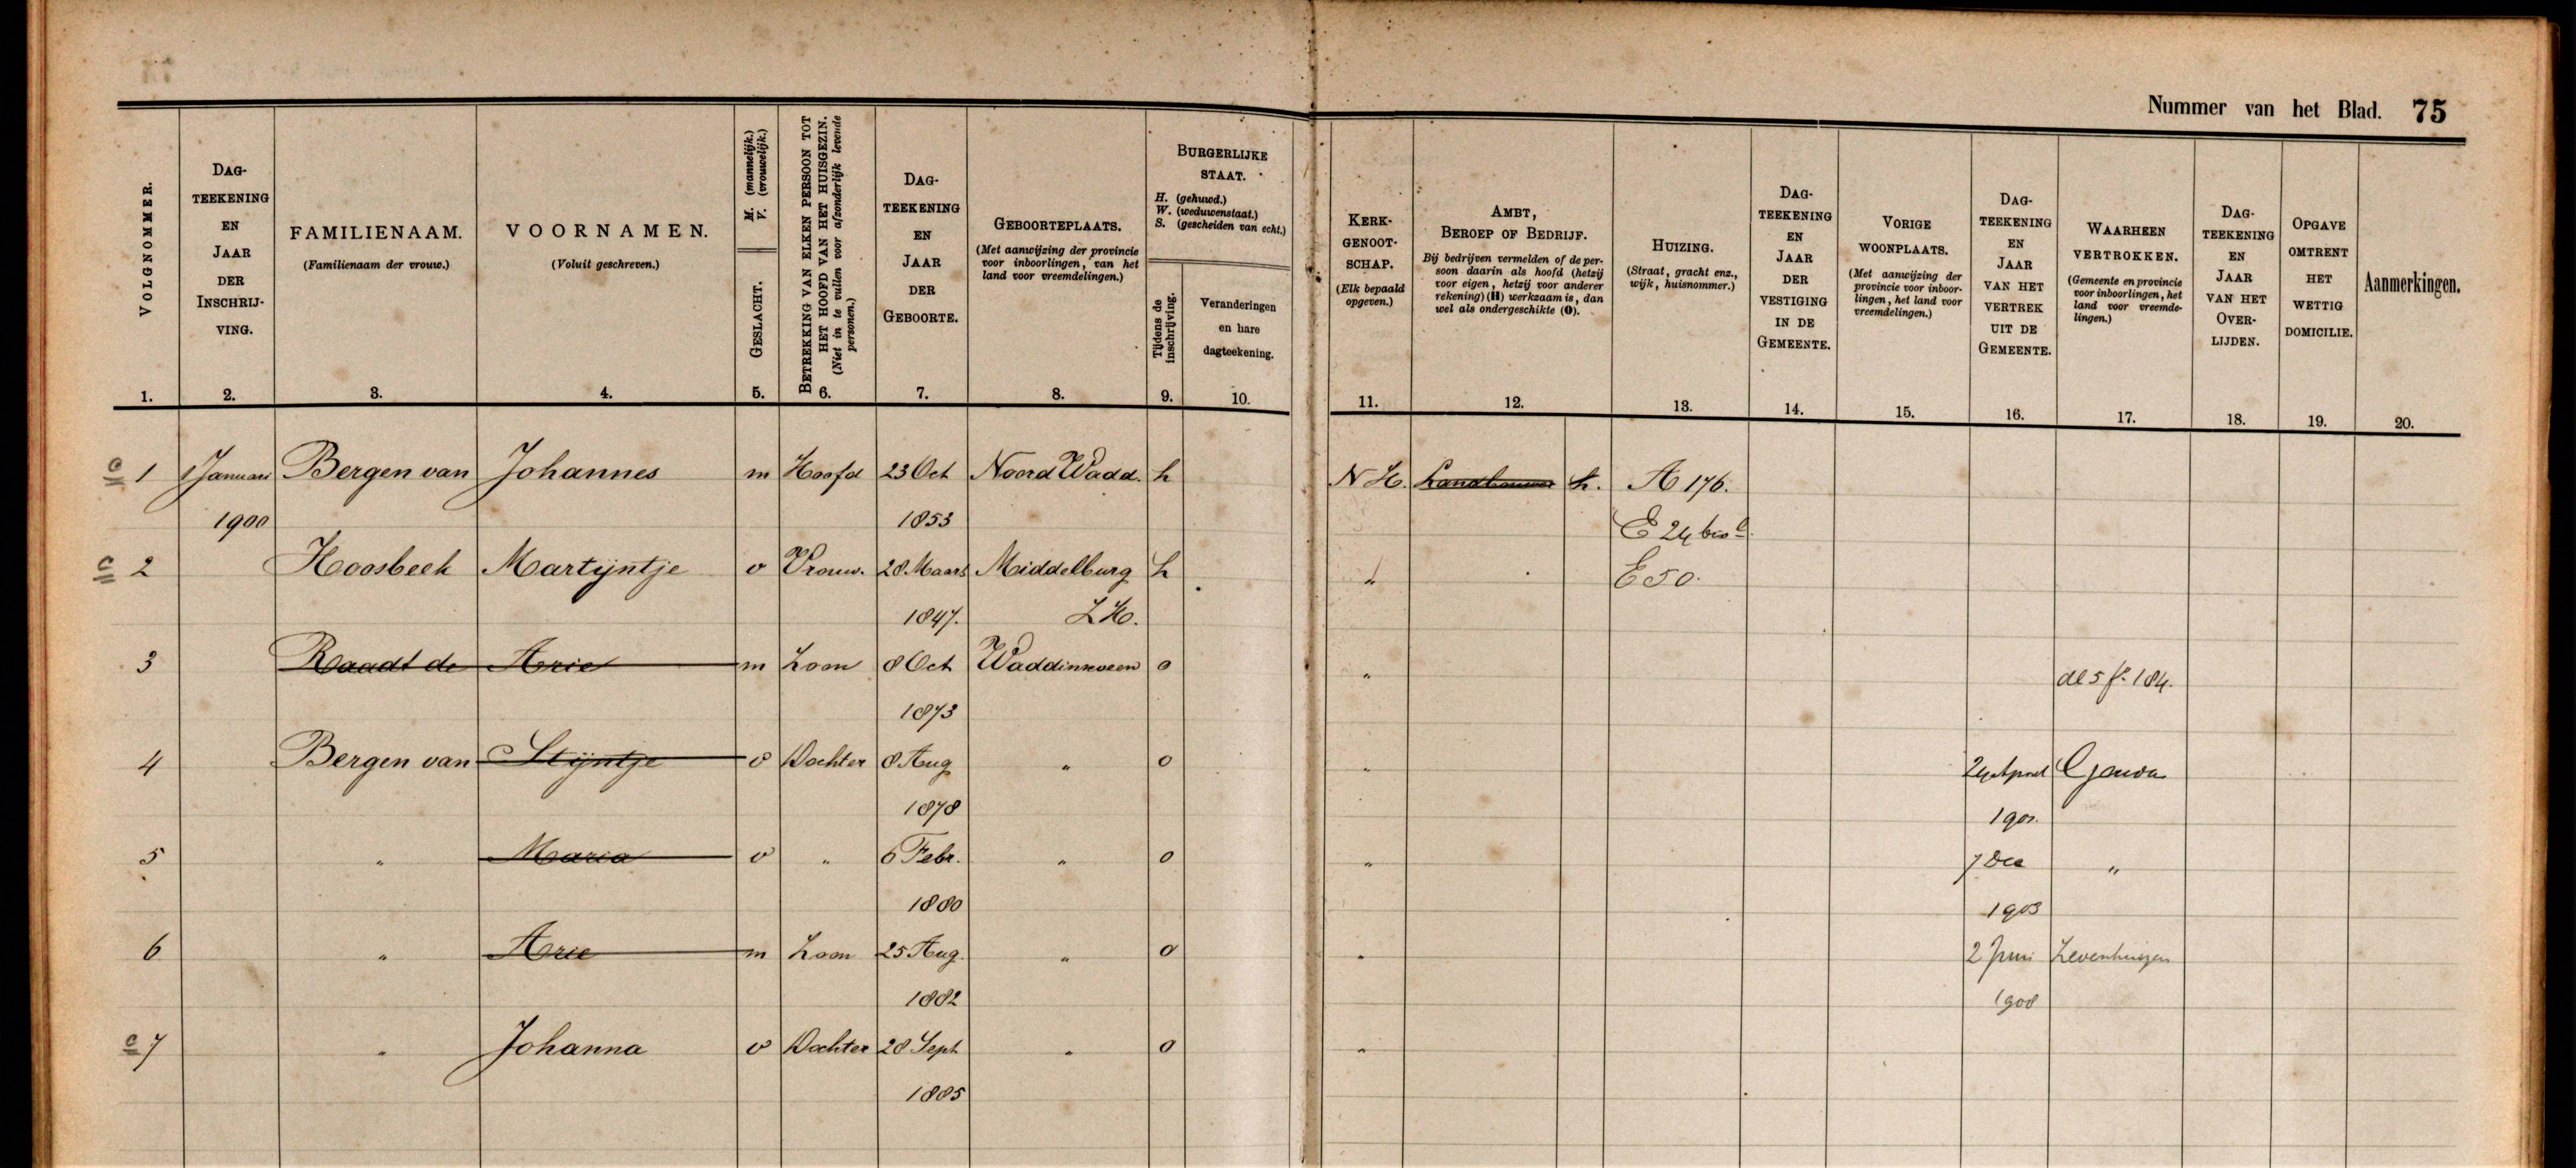 Nummer van het Blad. 75
VOLGNOMMER.
DAG-
TEEKENING
EN
JAAR
DER
INSCHRIJ-
VING.
FAMILIENAAM.
(Familienaam der vrouw.)
VOORNAMEN.
(Voluit geschreven.)
M. (mannelijk.)
V. (vrouwelijk.)
GESLACHT.
BETREKKING VAN ELKEN PERSOON TOT
HET HOOFD VAN HET HUISGEZIN.
(Niet in te vullen voor afzonderlijk levende
personen.)
DAG-
TEEKENING
EN
JAAR
DER
GEBOORTE.
GEBOORTEPLAATS.
(Met aanwijzing der provincie
voor inboorlingen, van het
land voor vreemdelingen.)
BURGERLIJKE
STAAT.
H. (gehuwd.)
W. (weduwenstaat.)
S. (gescheiden van echt.)
Tijdens de
inschrijving.
Veranderingen
en hare
dagteekening.
KERK-
GENOOT-
SCHAP.
(Elk bepaald
opgeven.)
AMBT,
BEROEP OF BEDRIJF.
Bij bedrijven vermelden of de per-
soon daarin als hoofd (hetzij
voor eigen, hetzij voor anderer
rekening) (H) werkzaam is, dan
wel als ondergeschikte (O).
HUIZING.
(Straat, gracht enz.,
wijk, huisnommer.)
DAG-
TEEKENING
EN
JAAR
DER
VESTIGING
IN DE
GEMEENTE.
VORIGE
WOONPLAATS.
(Met aanwijzing der
provincie voor inboor-
lingen, het land voor
vreemdelingen.)
DAG-
TEEKENING
EN
JAAR
VAN HET
VERTREK
UIT DE
GEMEENTE.
WAARHEEN
VERTROKKEN.
(Gemeente en provincie
voor inboorlingen, het
land voor vreemde-
lingen.)
DAG-
TEEKENING
EN
JAAR
VAN HET
OVER-
LIJDEN.
OPGAVE
OMTRENT
HET
WETTIG
DOMICILIE.
Aanmerkingen.
1. 2. 3. 4. 5. 6. 7. 8. 9. 10. 11. 12. 13. 14. 15. 16. 17. 18. 19. 20.
c 1 1 Januari Bergen van Johannes m Hoofd 23 Oct Noord Wadd. h N H. Landbouwer h. A 176.
1900 1853 E 24 bis
c 2 Hoosbeek Martijntje v Vrouw. 28 Maart Middelburg h " E 50.
1847. Z.H.
3 Raadt de Arie m Zoon 8 Oct Waddinxveen o " dl 5 f. 184.
1873
4 Bergen van Stijntje v Dochter 8 Aug " o " 24 April Gouda
1878 190
5 " Maria v " 6 Febr. " o " 7 Dec "
1880 1903
6 " Arie m Zoon 25 Aug. " o " 2 Juni Zevenhuizen
1882 1908
c 7 " Johanna v Dochter 28 Sept " o "
1885